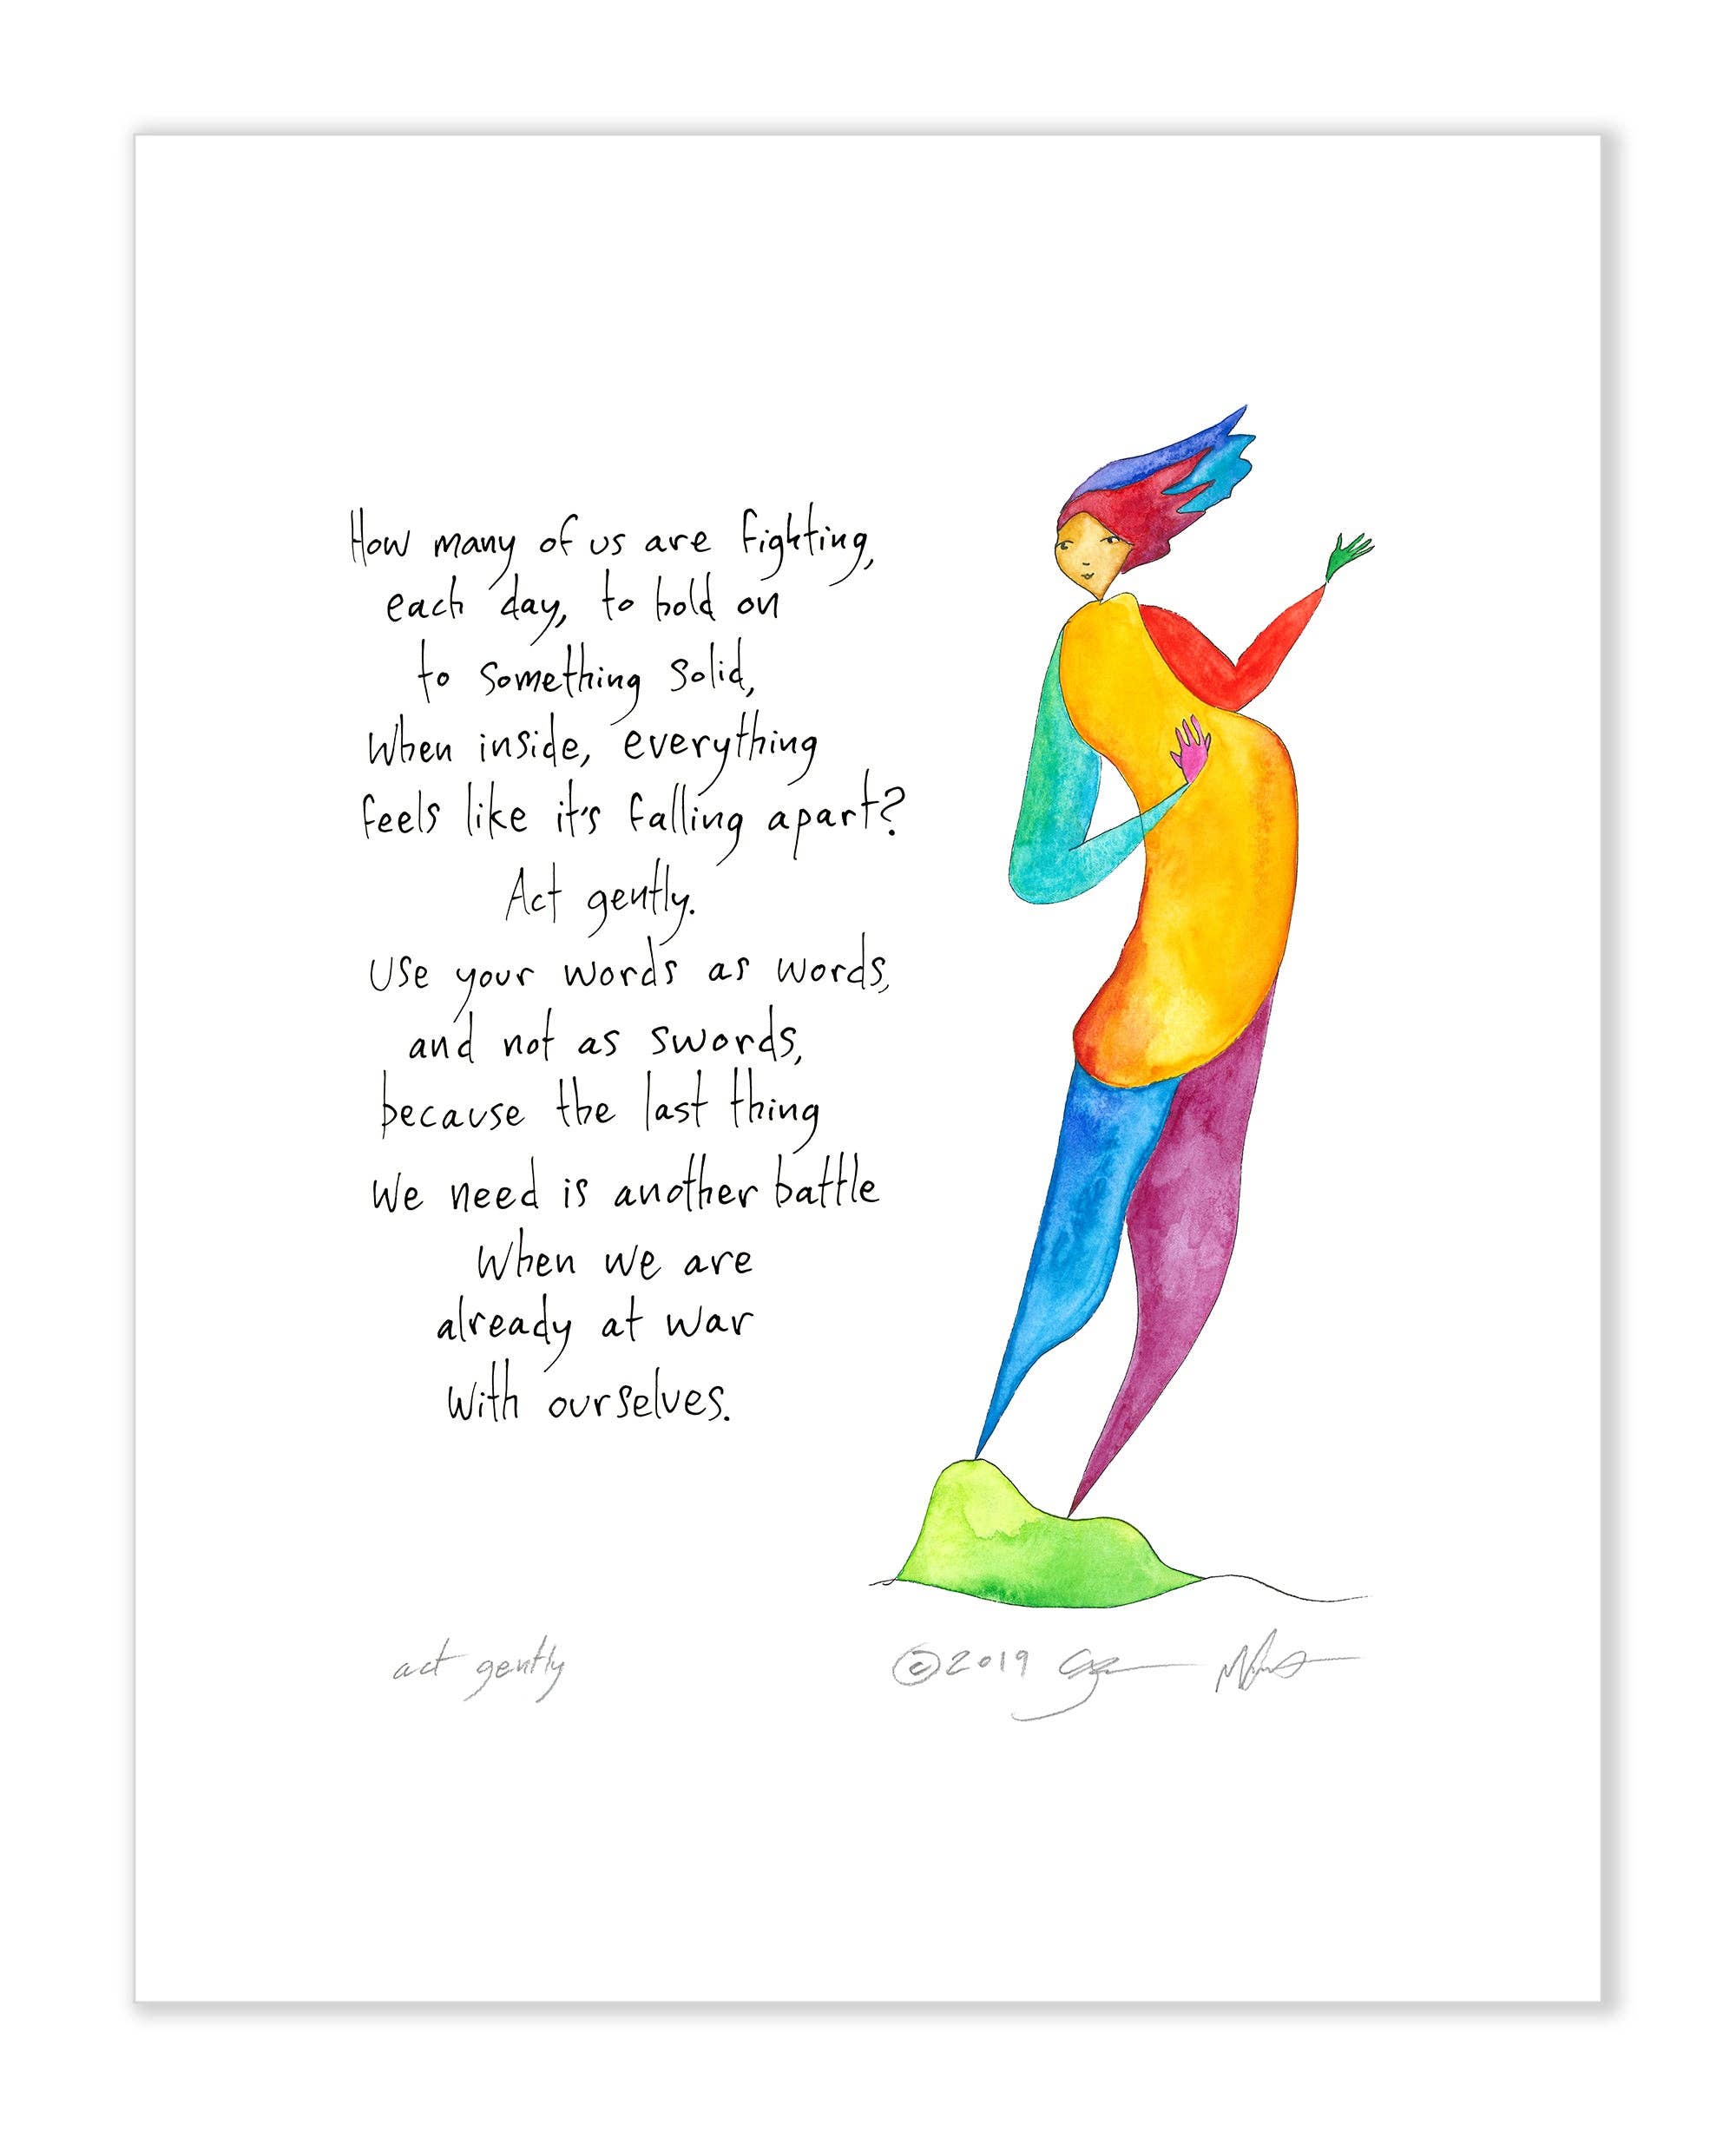 How many of us are fighting,
each day, to hold on
to something solid,
when inside, everything
feels like it's falling apart?
Act gently.
Use your words as words,
and not as swords,
because the last thing
we need is another battle
when we are
already at war
with ourselves.
act gently
©2019